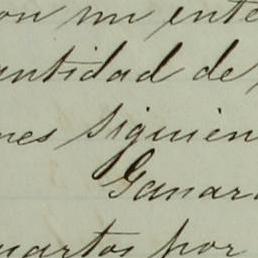 on mi inte
antidad de
nes siguien
Ganar
uartos por